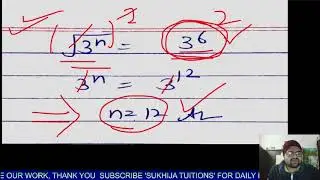 (√3ⁿ)² = (3⁶)²
3ⁿ = 3¹²
⇒ n = 12 Ans
E OUR WORK, THANK YOU SUBSCRIBE 'SUKHIJA TUITIONS' FOR DAILY